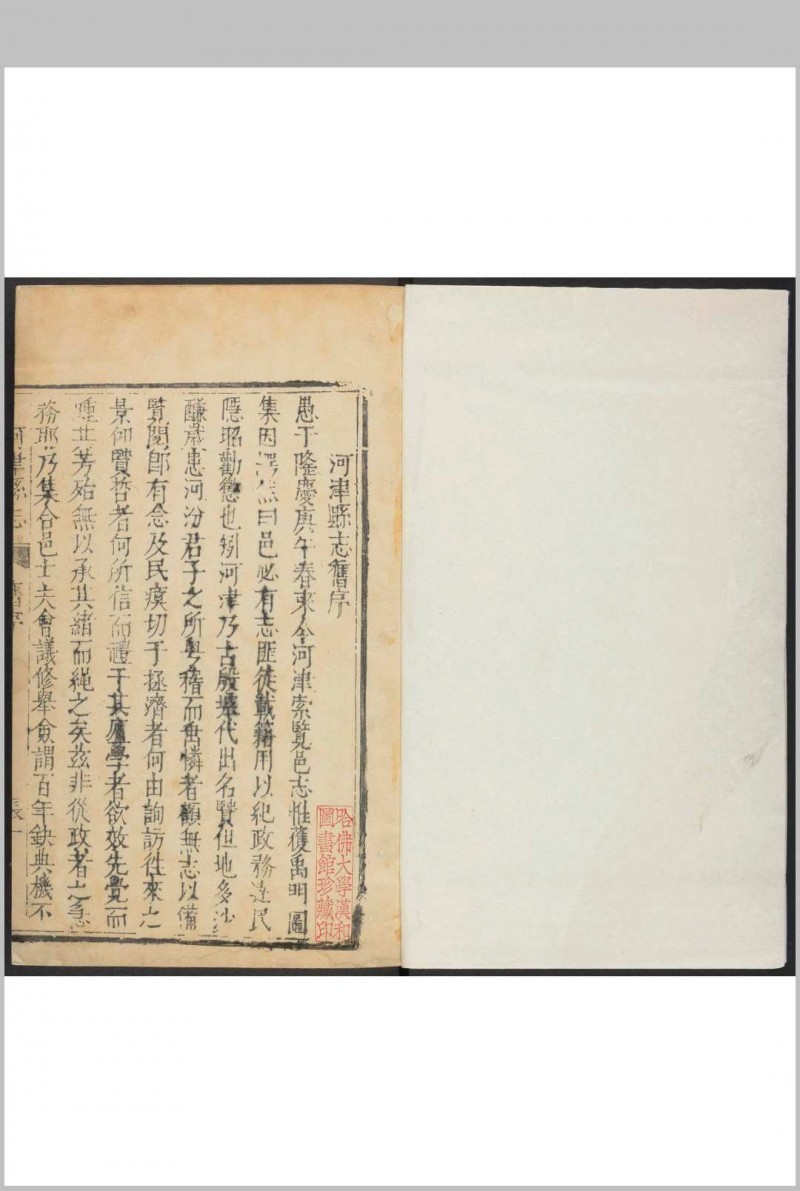 河津縣志舊序
愚于隆慶庚午春來令河津索覽邑志惟獲禹明圖
集因㦜然曰邑必有志匪徒載籍用以紀政務達民
隱昭勸懲也矧河津乃古殷墟代出名賢但地多沙
鹻歲患河汾君子之所粤稽而畱憐者顧無志以備
覽閱郎有念及民瘼切于拯濟者何由詢訪往來之
景仰賢哲者何所信而禮于其廬學者欲效先覺而
踵其芳殆無以承其緒而繩之矣茲非從政者之急
務耶乃集合邑士夫會議修舉僉謂百年缺典機不
河津縣志
舊序
哈佛大學漢和
圖書館珍藏印